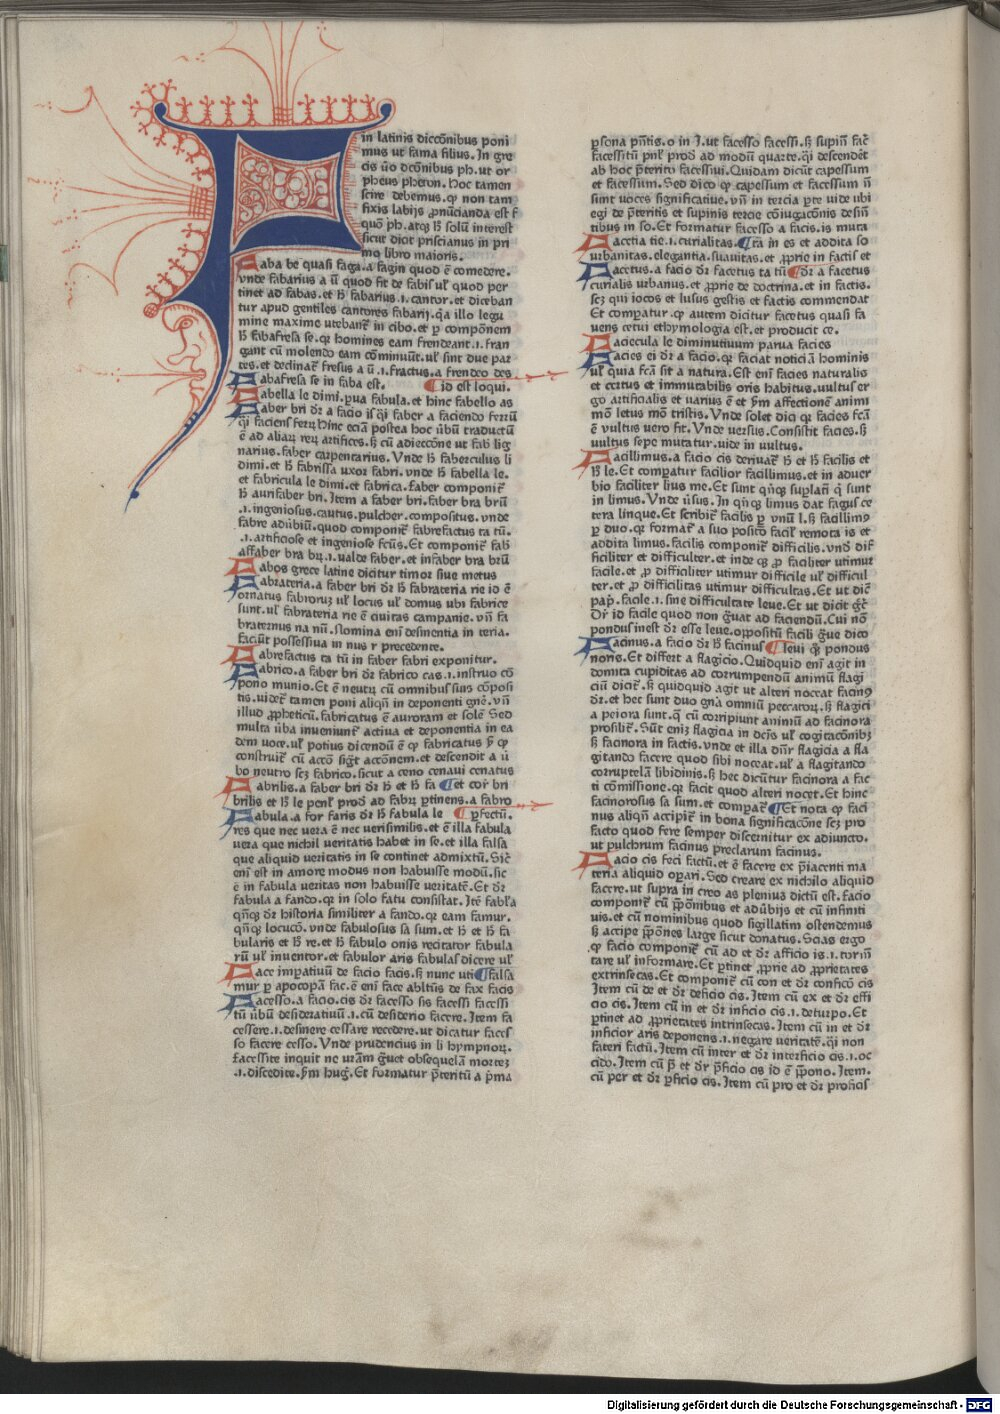 F in latinis diccōnibus poni
mus ut fama filius. In gre
cis ũo dcōnibus ph. ut or
pheus pheton. Hoc tamen
scire debemus. ꝙ non tam
fixis labijs ꝓnūcianda est f
quō ph. atqꝫ ħ solū interest
sicut dicit priscianus in pri
mo libro maioris.
Faba be quasi faga. a fagin quod ē comedere.
vnde fabarius a ū quod fit de fabis ul' quod per
tinet ad fabas. et ħ fabarius .i. cantor. et diceban
tur apud gentiles cantores fabarij. q̇a illo legu
mine maxime utebant̄ in cibo. et ꝑ compōnem
ħ fabafresa se. qꝛ homines eam frendeant .i. fran
gant cū molendo eam cōminuūt. ul' sint due par
tes. et declinat̄ fresus a ū .i. fractus. a frendeo des
Fabafresa se in faba est. ¶ id est loqui.
Fabella le dimi. ꝑua fabula. et hinc fabello as
Faber bri dꝛ a facio is q̇i faber a faciendo ferrū
q̇i faciens ferrꝝ hinc eciā postea hoc ūbū traductū
ē ad aliaꝝ reꝝ artifices. ꝫ cū adieccōne ut fab̄ lig
narius. faber carpentarius. Vnde ħ faberculus li
dimi. et ħ fabrissa uxor fabri. vnde ħ fabella le.
et fabricula le dimi. et fabrica. faber componit̄
ħ aurifaber bri. Item a faber bri. faber bra brū
.i. ingeniosus. cautus. pulcher. compositus. vnde
fabre adūbiū. quod componit̄ fabrefactus ta tū.
.i. artificiose et ingeniose fc̄us. Et componit̄ fab̄
affaber bra bꝝ .i. ualde faber. et infaber bra brū
Fabos grece latine dicitur timor siue metus
Fabrateria. a faber bri dꝛ ħ fabrateria rie id ē
ornatus fabroꝝ ul' locus ul' domus ubi fabrice
sunt. ul' fabrateria rie ē ciuitas campanie. vn̄ fa
braternus na nū. Nomina enī desinentia in teria.
faciūt possessiua in nus r precedente.
Fabrefactus ta tū in faber fabri exponitur.
Fabrico. a faber bri dꝛ fabrico cas .i. instruo cō
pono munio. Et ē neutꝝ cū omnibus suis cōposi
tis. uidet̄ tamen poni aliqn̄ in deponenti gn̄e. vn̄
illud ꝓpheticū. fabricatus ē auroram et solē Sed
multa ūba inueniunt̄ actiua et deponentia in ea
dem uoce. ul' potius dicendū ē ꝙ fabricatus ꝙ
construit̄ cū accō sigt̄ accōnem. et descendit a ū
bo neutro scꝫ fabrico. sicut a ceno cenaui cenatus
Fabrilis. a faber bri dꝛ ħ et ħ fa ¶ et coꝛ bri
brilis et ħ le penl' prod̄ ad fabꝝ ꝑtinens. a fabro
Fabula. a for faris dꝛ ħ fabula le ¶ ꝑfectū.
res que nec uera ē nec uerisimilis. et ē illa fabula
uera que nichil ueritatis habet in se. et illa falsa
que aliquid ueritatis in se continet admixtū. Sic̄
enī est in amore modus non habuisse modū. sic
ē in fabula ueritas non habuisse ueritatē. Et dꝛ
fabula a fando. qꝛ in solo fatu consistat. Itē fabl'a
qn̄qꝫ dꝛ historia similiter a fando. qꝛ eam famur.
qn̄qꝫ locucō. vnde fabulosus sa sum. et ħ et ħ fa
bularis et ħ re. et ħ fabulo onis recitator fabula
rū ul' inuentor. et fabulor aris fabulas dicere ul'
Face imꝑatiuū de facio facis. ꝫ nunc uti ¶ falsa
mur ꝑ apocopā fac. ē enī face abltūs de fax facis
Facesso. a facio. cis dꝛ facesso sis facessi facessi
tū ūbū desideratiuū .i. cū desiderio facere. Item fa
cessere .i. desinere cessare recedere. ut dicatur faces
so facere cesso. Vnde prudencius in li hympnoꝝ.
Facessite inquit ne uram̄ q̄uet obsequelā mortez
.i. discedite. ꝓm hug̃. Et formatur ꝑteritū a ꝑma
ꝑsona pn̄tis. o in I. ut facesso facessi. ꝫ supin̄ fac̄
facessitū pnl' prod̄ ad modū quarte. q̇i descendēt
ab hoc ꝑterito facessiui. Quidam dicūt capessum
et facessum. Sed dico ꝙ capessum et facessum n̄
sint uoces significatiue. vn̄ in tercia ꝑte uide ubi
egi de ꝑteritis et supinis tercie cōiugacōnis desin̄
tibus in so. Et formatur facesso a facis. is muta
Facetia tie .i. curialitas. ¶ ta in es et addita so
urbanitas. elegantia. suauitas. et ꝓprie in factis et
Facetus. a facio dꝛ facetus ta tū ¶ dꝛ a facetus
curialis urbanus. et ꝓprie de doctrina. et in factis.
scꝫ qui iocos et lusus gestis et factis commendat
Et comꝑatur. ꝙ autem dicitur facetus quasi fa
uens cetui ethymologia est. et producit ce.
Faciecula le diminutiuum parua facies
Facies ei dꝛ a facio. qꝛ faciat noticiā hominis
ul' quia fc̄a sit a natura. Est enī facies naturalis
et certus et immutabilis oris habitus. uultus er
go artificialis et uarius ē et ꝓm affectionē animi
mō letus mō tristis. Vnde solet dici qꝛ facies fc̄a
ē uultus uero fit. Vnde uersus. Consistit facies. ꝫ
uultus sepe mutatur. uide in uultus.
Facillimus. a facio cis deriuat̄ ħ et ħ facilis et
ħ le. Et comꝑatur facilior facillimus. et in aduer
bio faciliter lius me. Et sunt qn̄qꝫ suplatī q̄ sunt
in limus. Vnde ūsus. In qn̄qꝫ limus dat fagus ce
tera linque. Et scribit̄ facilis ꝑ vnū l. ꝫ facillimꝰ
ꝑ duo. qꝛ format̄ a suo positō facil' remota is et
addita limus. facilis componit̄ difficilis. vnd̄ dif
ficiliter et difficulter. et inde cꝫ ꝓ faciliter utimur
facile. et ꝓ difficiliter utimur difficile ul' difficul
ter. et ꝓ difficilitas utimur difficultas. Et ut dic̄
pap̄. facile .i. sine difficultate leue. Et ut dicit g̃c̄
Dꝛ id facile quod non g̃uat ad faciendū. Cui nō
pondus inest dꝛ esse leue. oppositū facili g̃ue dico
Facinus. a facio dꝛ ħ facinus ¶ leui q̄ꝫ pondus
noris. Et differt a flagicio. Quidquid enī agit in
domita cupiditas ad corrumpendū animū flagi
ciū dicit̄. ꝫ quidquid agit ut alteri noceat facinꝰ
dꝛ. et hec sunt duo gn̄a omniū peccatoꝝ. ꝫ flagici
a peiora sunt. q̄ cū corripiunt animū ad facinora
prosilit̄. Sūt enīꝫ flagicia in dcīs ul' cogitacōnibꝫ
ꝫ facinora in factis. vnde et illa dn̄r flagicia a fla
gitando facere quod sibi noceat. ul' a flagitando
corruptelā libidinis. ꝫ hec dicūtur facinora a fac
ti cōmissione. qꝛ facit quod alteri nocet. Et hinc
facinorosus sa sum. et comꝑat̄ ¶ Et nota ꝙ faci
nus aliqn̄ accipit̄ in bona significacōne scꝫ pro
facto quod fere semper discernitur ex adiuncto.
ut pulchrum facinus preclarum facinus.
Facio cis feci factū. et ē facere ex ꝑiacenti ma
teria aliquid oꝑari. Sed creare ex nichilo aliquid
facere. ut supra in creo as plenius dictū est. facio
componit̄ cū ꝓpōnibus et adūbijs et cū infiniti
uis. et cū nominibus quod sigillatim ostendemus
ꝫ accipe ꝓpōnes large sicut donatus. Scias ergo
ꝙ facio componit̄ cū ad et dꝛ afficio is .i. torm̄
tare ul' informare. Et ꝑtinet ꝓprie ad ꝓprietates
extrinsecas. Et componit̄ cū con et dꝛ conficō cis
Item cū de et dꝛ deficio cis. Item cū ex et dꝛ effi
cio cis. Item cū in et dꝛ inficio cis .i. deturpo. Et
ꝑtinet ad ꝓprietates intrinsecas. Item cū in et dꝛ
inficior aris deponens .i. negare ueritatē. q̇i non
fateri factū. Item cū inter et dꝛ interficio cis .i. oc
cido. Item cū ꝑ et dꝛ ꝑficio cis id ē ꝓpono. Item.
cū per et dꝛ ꝑficio cis. Item cū pro et dꝛ proficis
Digitalisierung gefördert durch die Deutsche Forschungsgemeinschaft - DFG